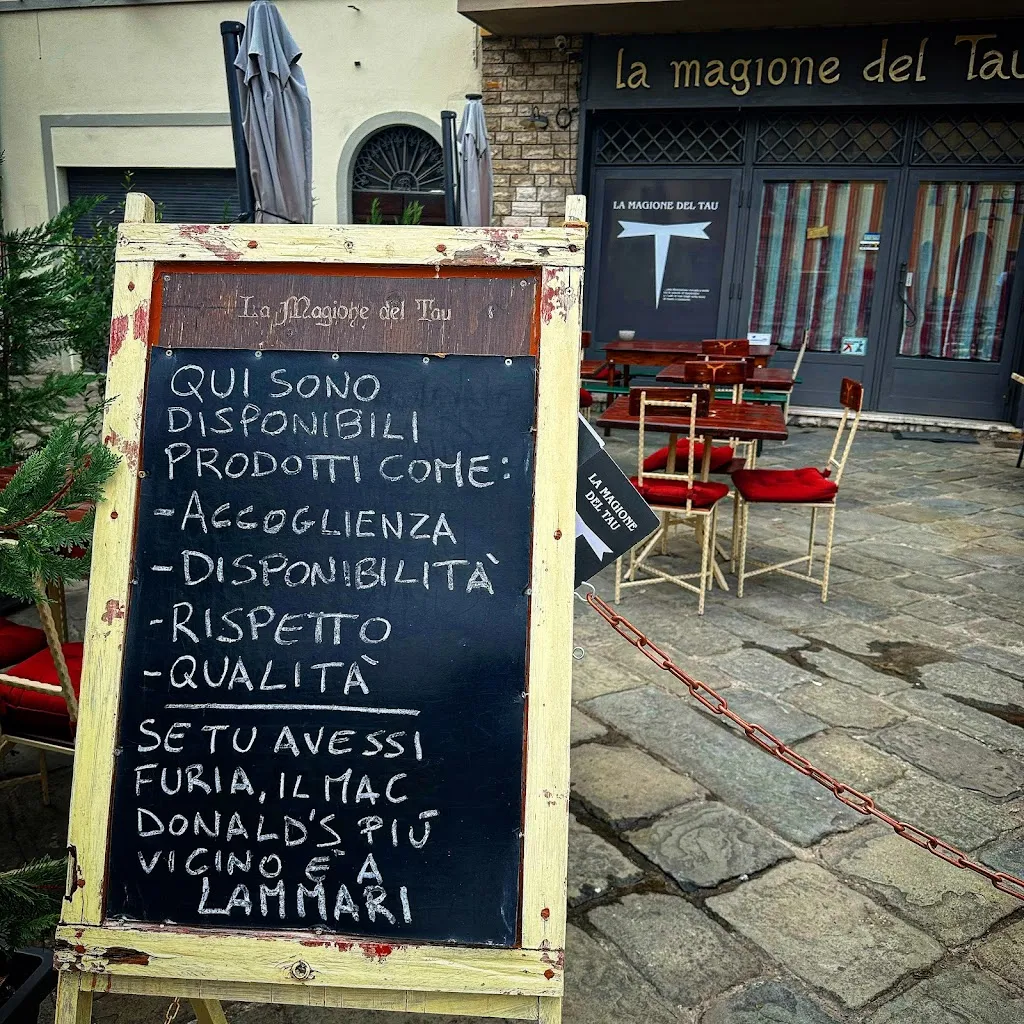 la magione del Tau
LA MAGIONE DEL TAU
La Magione del Tau
QUI SONO
DISPONIBILI
PRODOTTI COME:
-ACCOGLIENZA
-DISPONIBILITÀ
-RISPETTO
-QUALITÀ
SE TU AVESSI
FURIA, IL MAC
DONALD'S PIÙ
VICINO È A
LAMMARI
LA MAGIONE
DEL TAU